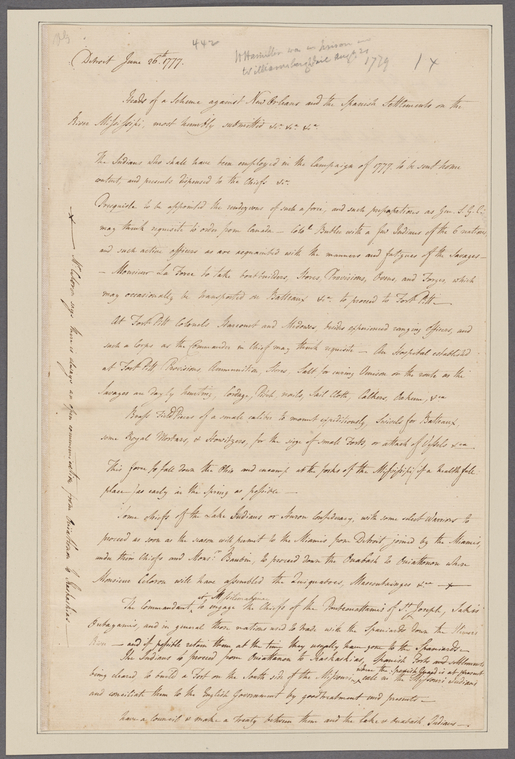 442
W Hamilton was in prison
Williamsburg Jail Augt
1779
1 x
Detroit June 26th 1777.
Heads of a Scheme against New Orleans and the Spanish Settlements on the
River Mississipi, most humbly submitted &c. &c. &c.
The Indians who shall have been employed in the Campaign of 1777, to be sent home
content, and presents dispensed to the Chiefs &c.
Presquisle to be appointed the rendezvous of such a force, and such preparations as Genl. S. G. C.
may think requisite to order from Canada — Colo. Butler with a few Indians of the 6 nations
and such active officers as are acquainted with the manners and fatigues of the Savages —
Monsieur La Force to take boatbuilders, Stores, Provisions, Ovens, and Forges, which
may occasionally be transported in Batteaux &c. to proceed to Fort Pitt —
At Fort Pitt Colonels Harcourt and Medows, besides experienced ranging officers, and
such a Corps as the Commander in Chief may think requisite — An Hospital established
at Fort Pitt Provisions, Ammunition Stores, Salt for curing Venison on the route as the
Savages are daily hunting, Cordage, Pitch, nails, Sail Cloth, Oakum, &ca
Brass Field Pieces of a small calibre to mount expeditiously, Swivels for Batteaux,
some Royal Mortars, or Howitzers, for the siege of small Forts or attack of &ca —
This force to fall down the Ohio and encamp at the forks of the Mississipi if a healthfull
place as early in the Spring as possible —
Some Chiefs of the Lake Indians or Huron Confederacy, with some select Warriors to
proceed as soon as the season will permit to the Miamis from Detroit joined by the Miamis,
under their Chiefs and Monsr. Baubin, to proceed down the Ouabash to Ouiattonon where
Monsieur Celoron will have assembled the Quiquaboes, Mascoutainges &c — x
The Commandant, to engage the Chiefs of the Pouteouattamis of St. Joseph, Sakis
Outagamis, and in general those nations used to trade with the Spaniards down the River
— and if possible retain them, at the time they usually have gone to the Spaniards —
The Indians to proceed from Ouiattonon to Kaskaskias, Spanish Forts and Settlements
where the Spanish Guard is at present
being cleared, to build a Fort on the South side of the Missouri, call in the Missouri Indians
and conciliate them to the English Government by good treatment and presents —
have a Council & make a Treaty between them and the Lake & Ouabash Indians —
x — Mr Celoron says there is always an open communication from Ouiattonon to Kaskaskias —